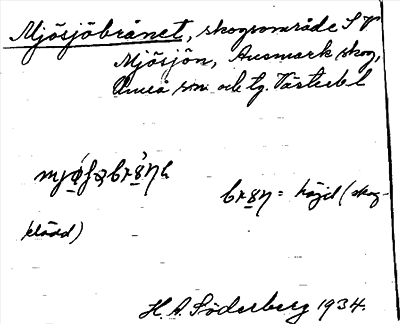 Mjösjöbrånet, skogsområde S V
Mjösjön, Ansmark skog,
Umeå sn. och tg. Västerb l
brɷŋ = höjd (skog-
klädd)
H. A. Söderberg 1934.